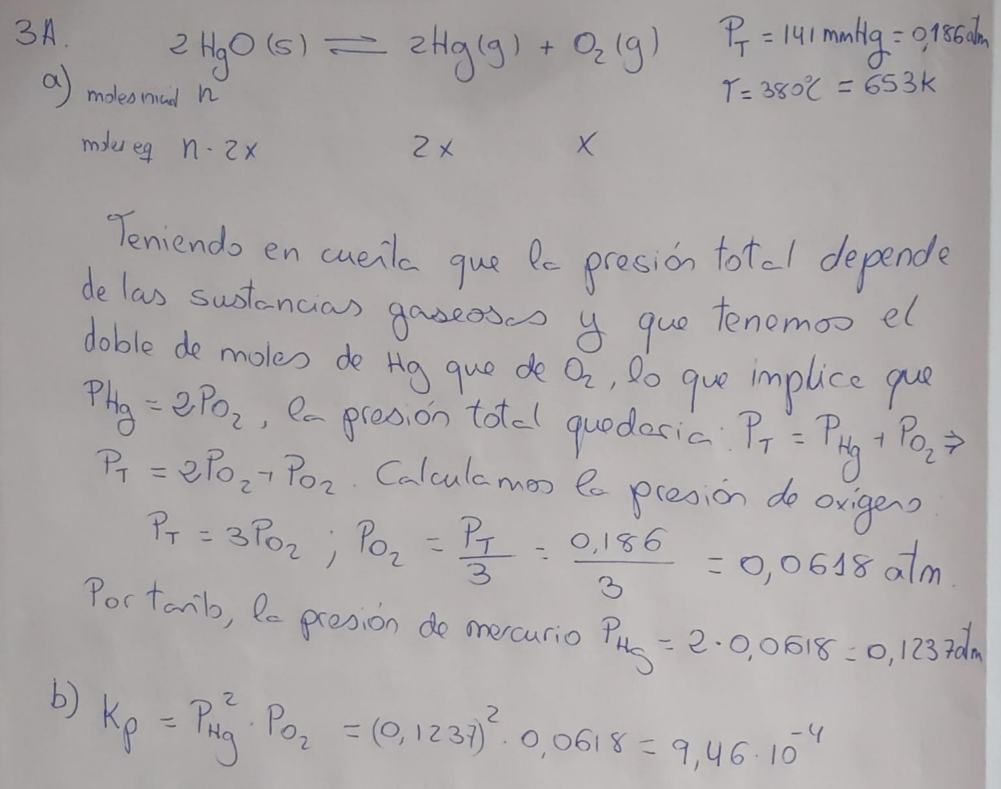 3A. 2HgO(s) ⇌ 2Hg(g) + O₂(g) P_T = 141 mmHg = 0,186 atm
T = 380℃ = 653K
a) moles inicial n
moles eq n - 2x 2x x
Teniendo en cuenta que la presión total depende
de las sustancias gaseosas y que tenemos el
doble de moles de Hg que de O₂, lo que implica que
PHg = 2PO₂, la presión total quedaria: P_T = P_Hg + PO₂ ⇒
P_T = 2PO₂ + PO₂. Calculamos la presión de oxígeno.
P_T = 3PO₂ ; PO₂ = P_T/3 = 0,186/3 = 0,0618 atm.
Por tanto, la presión de mercurio P_Hg = 2·0,0618 = 0,1237 atm
b) Kp = P_Hg² · PO₂ = (0,1237)² · 0,0618 = 9,46·10⁻⁴